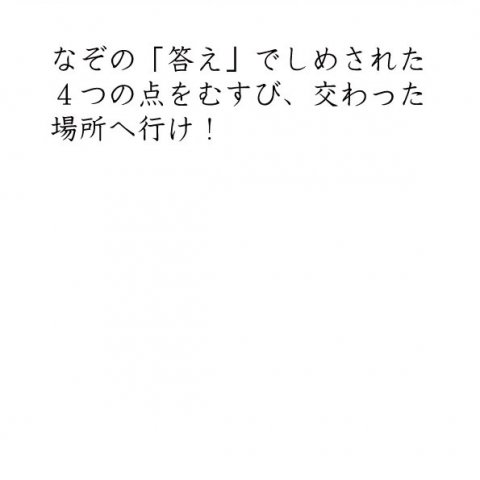 なぞの「答え」でしめされた
４つの点をむすび、交わった
場所へ行け！